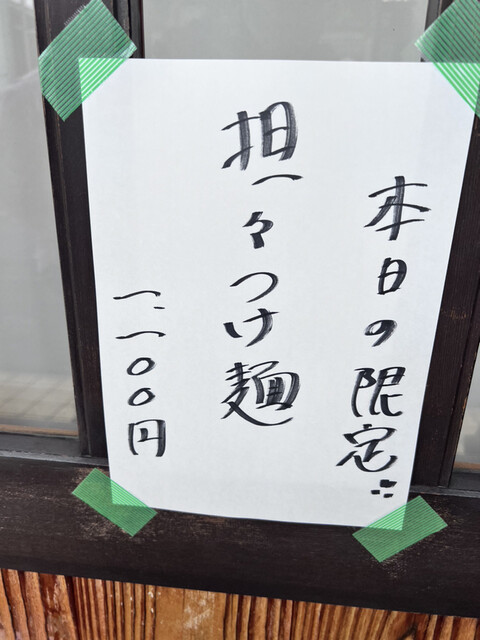 本日の限定∵
担々つけ麺
一、一〇〇円